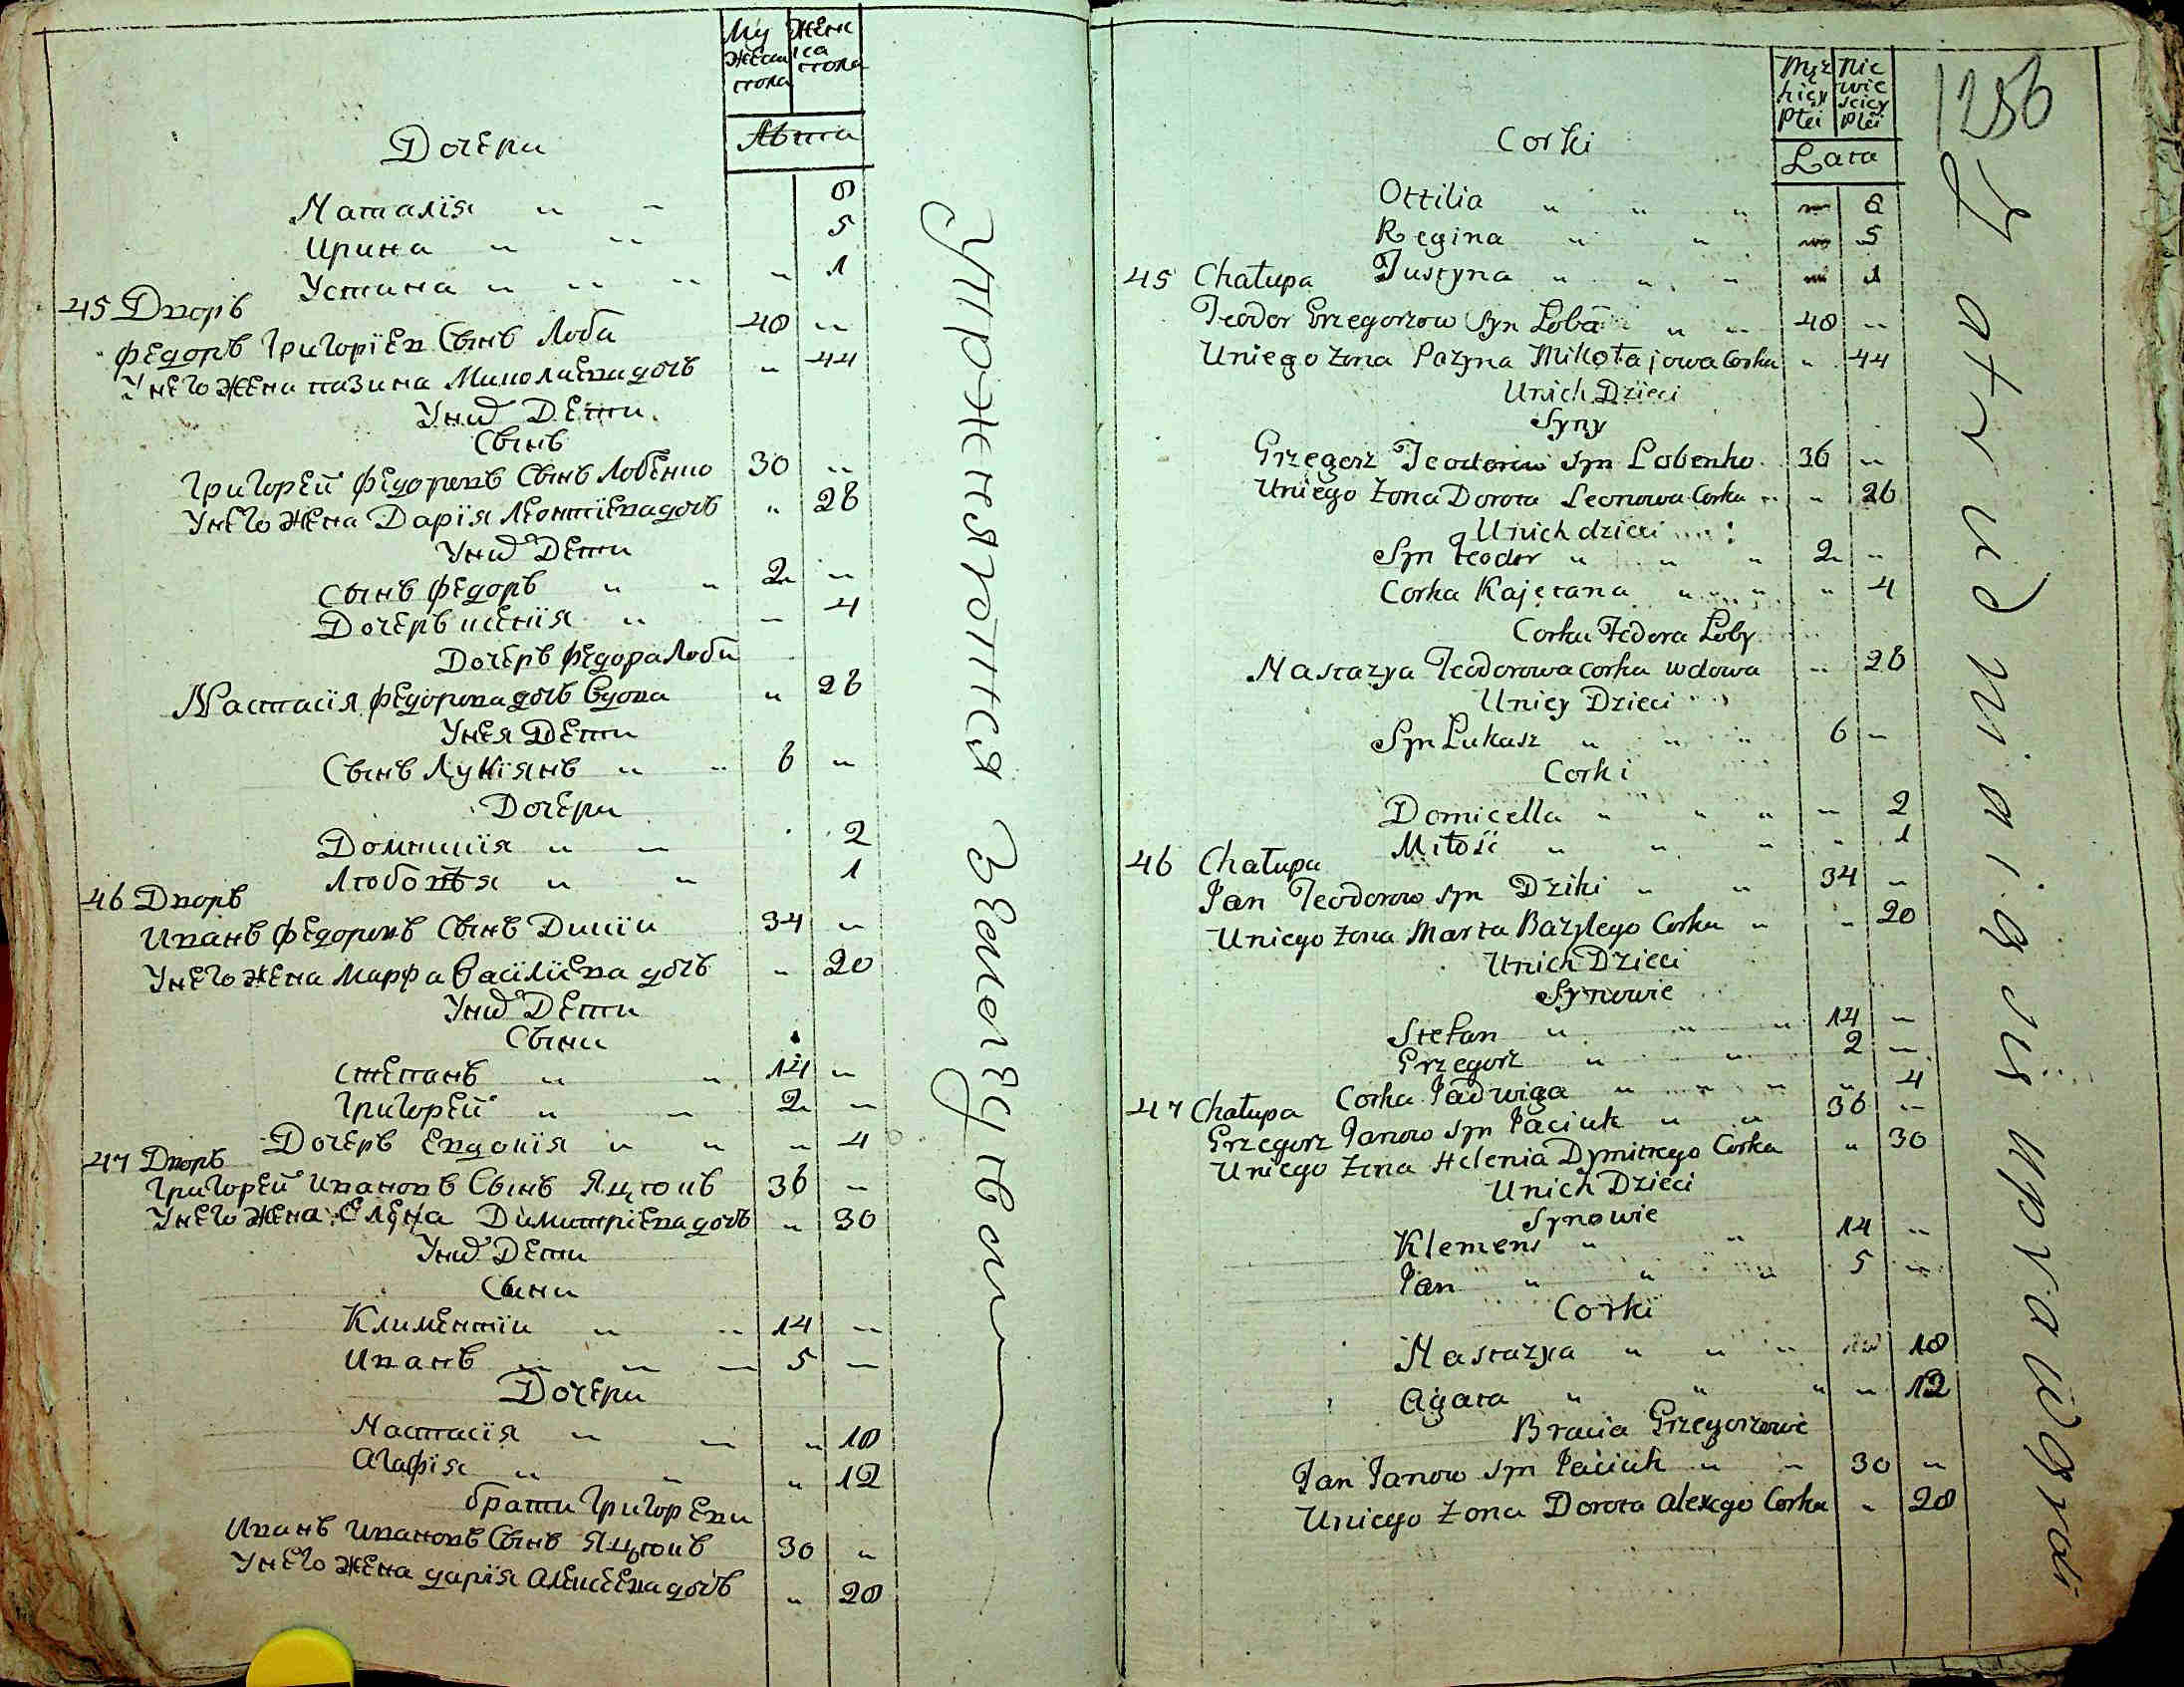 Му жеска пола
Женс ка пола
Лѣта
Дочери
Наталія " " 8
Ирина " " 5
Устина " " " " 1
45 Дворъ
Федоръ Григоріев Сынъ Лоба 48 "
У него жена пазина Миколаева дочъ " 44
У них Дети
Сынъ
Григорей Федоровъ Сынъ Лобенко 30 "
У него жена Дарія Леонтіева дочъ " 26
У них Дети
Сынъ Федоръ " " 2 "
Дочеръ ксенія " " 4
Дочеръ Федора Лоби
Настасія Федорова дочъ вдова " 26
У нея Дети
Сынъ Лукіянъ " " 6 "
Дочери
Домникія " " 2
Любовъя " " 1
46 Дворъ
Иванъ Федоровъ Сынъ Дикій 34 "
У него жена Марфа Василіева дочъ " 20
У них Дети
Сыни
Степанъ " " 14 "
Григорей " " 2 "
Дочеръ Евдокія " " " 4
47 Дворъ
Григорей Ивановъ Сынъ Яцюкъ 36 "
У него жена Елена Димитріева дочъ " 30
У них Дети
Сыни
Климентіи " " 14 "
Иванъ " " " 5 "
Дочери
Настасія " " " 18
Агафія " " " 12
брати Григореви
Иванъ Ивановъ Сынъ Яцюкъ 30 "
У него жена дарія Алексеева дочъ " 28
упражняютися Земледѣлем
1256
Męz kiey Płei
Nie wie sciey Płei
Lata
Corki
Ottilia " " " " 8
Regina " " " 5
Justyna " " " " 1
45 Chałupa
Teodor Grzegorzow Syn Loba " " 48 "
U niego Zona Pazyna Mikołajowa Corka " 44
U nich Dzieci
Syny
Grzegorz Teodorow Syn Lobenko 36 "
U niego Zona Dorota Leonowa Corka " " 26
U nich dzieci
Syn Teodor " " " 2 "
Corka Kajetana " " " 4
Corka Fedora Loby
Nastazya Teodorowa corka wdowa " 26
U niey Dzieci
Syn Lukasz " " " 6 "
Corki
Domicella " " " " 2
Miłość " " " " 1
46 Chałupa
Jan Teodorow syn Dziki " " 34 "
U niego zona Marta Bazylego Corka " " 20
U nich Dzieci
Synowie
Stefan " " " 14 "
Grzegorz " " 2 "
Corka Jadwiga " " " " 4
47 Chałupa
Grzegorz Janow syn Jaciuk " " 36 "
U niego Zona Helenia Dymitrego Corka " 30
U nich Dzieci
Synowie
Klemens " " 14 "
Jan " " " 5 "
Corki
Nastazya " " " " 18
Agata " " " " 12
Bracia Grzegorzowie
Jan Janow syn Jaciuk " " 30 "
U niego Zona Dorota Alexego Corka " 28
Zatrudniaią się uprawą roli